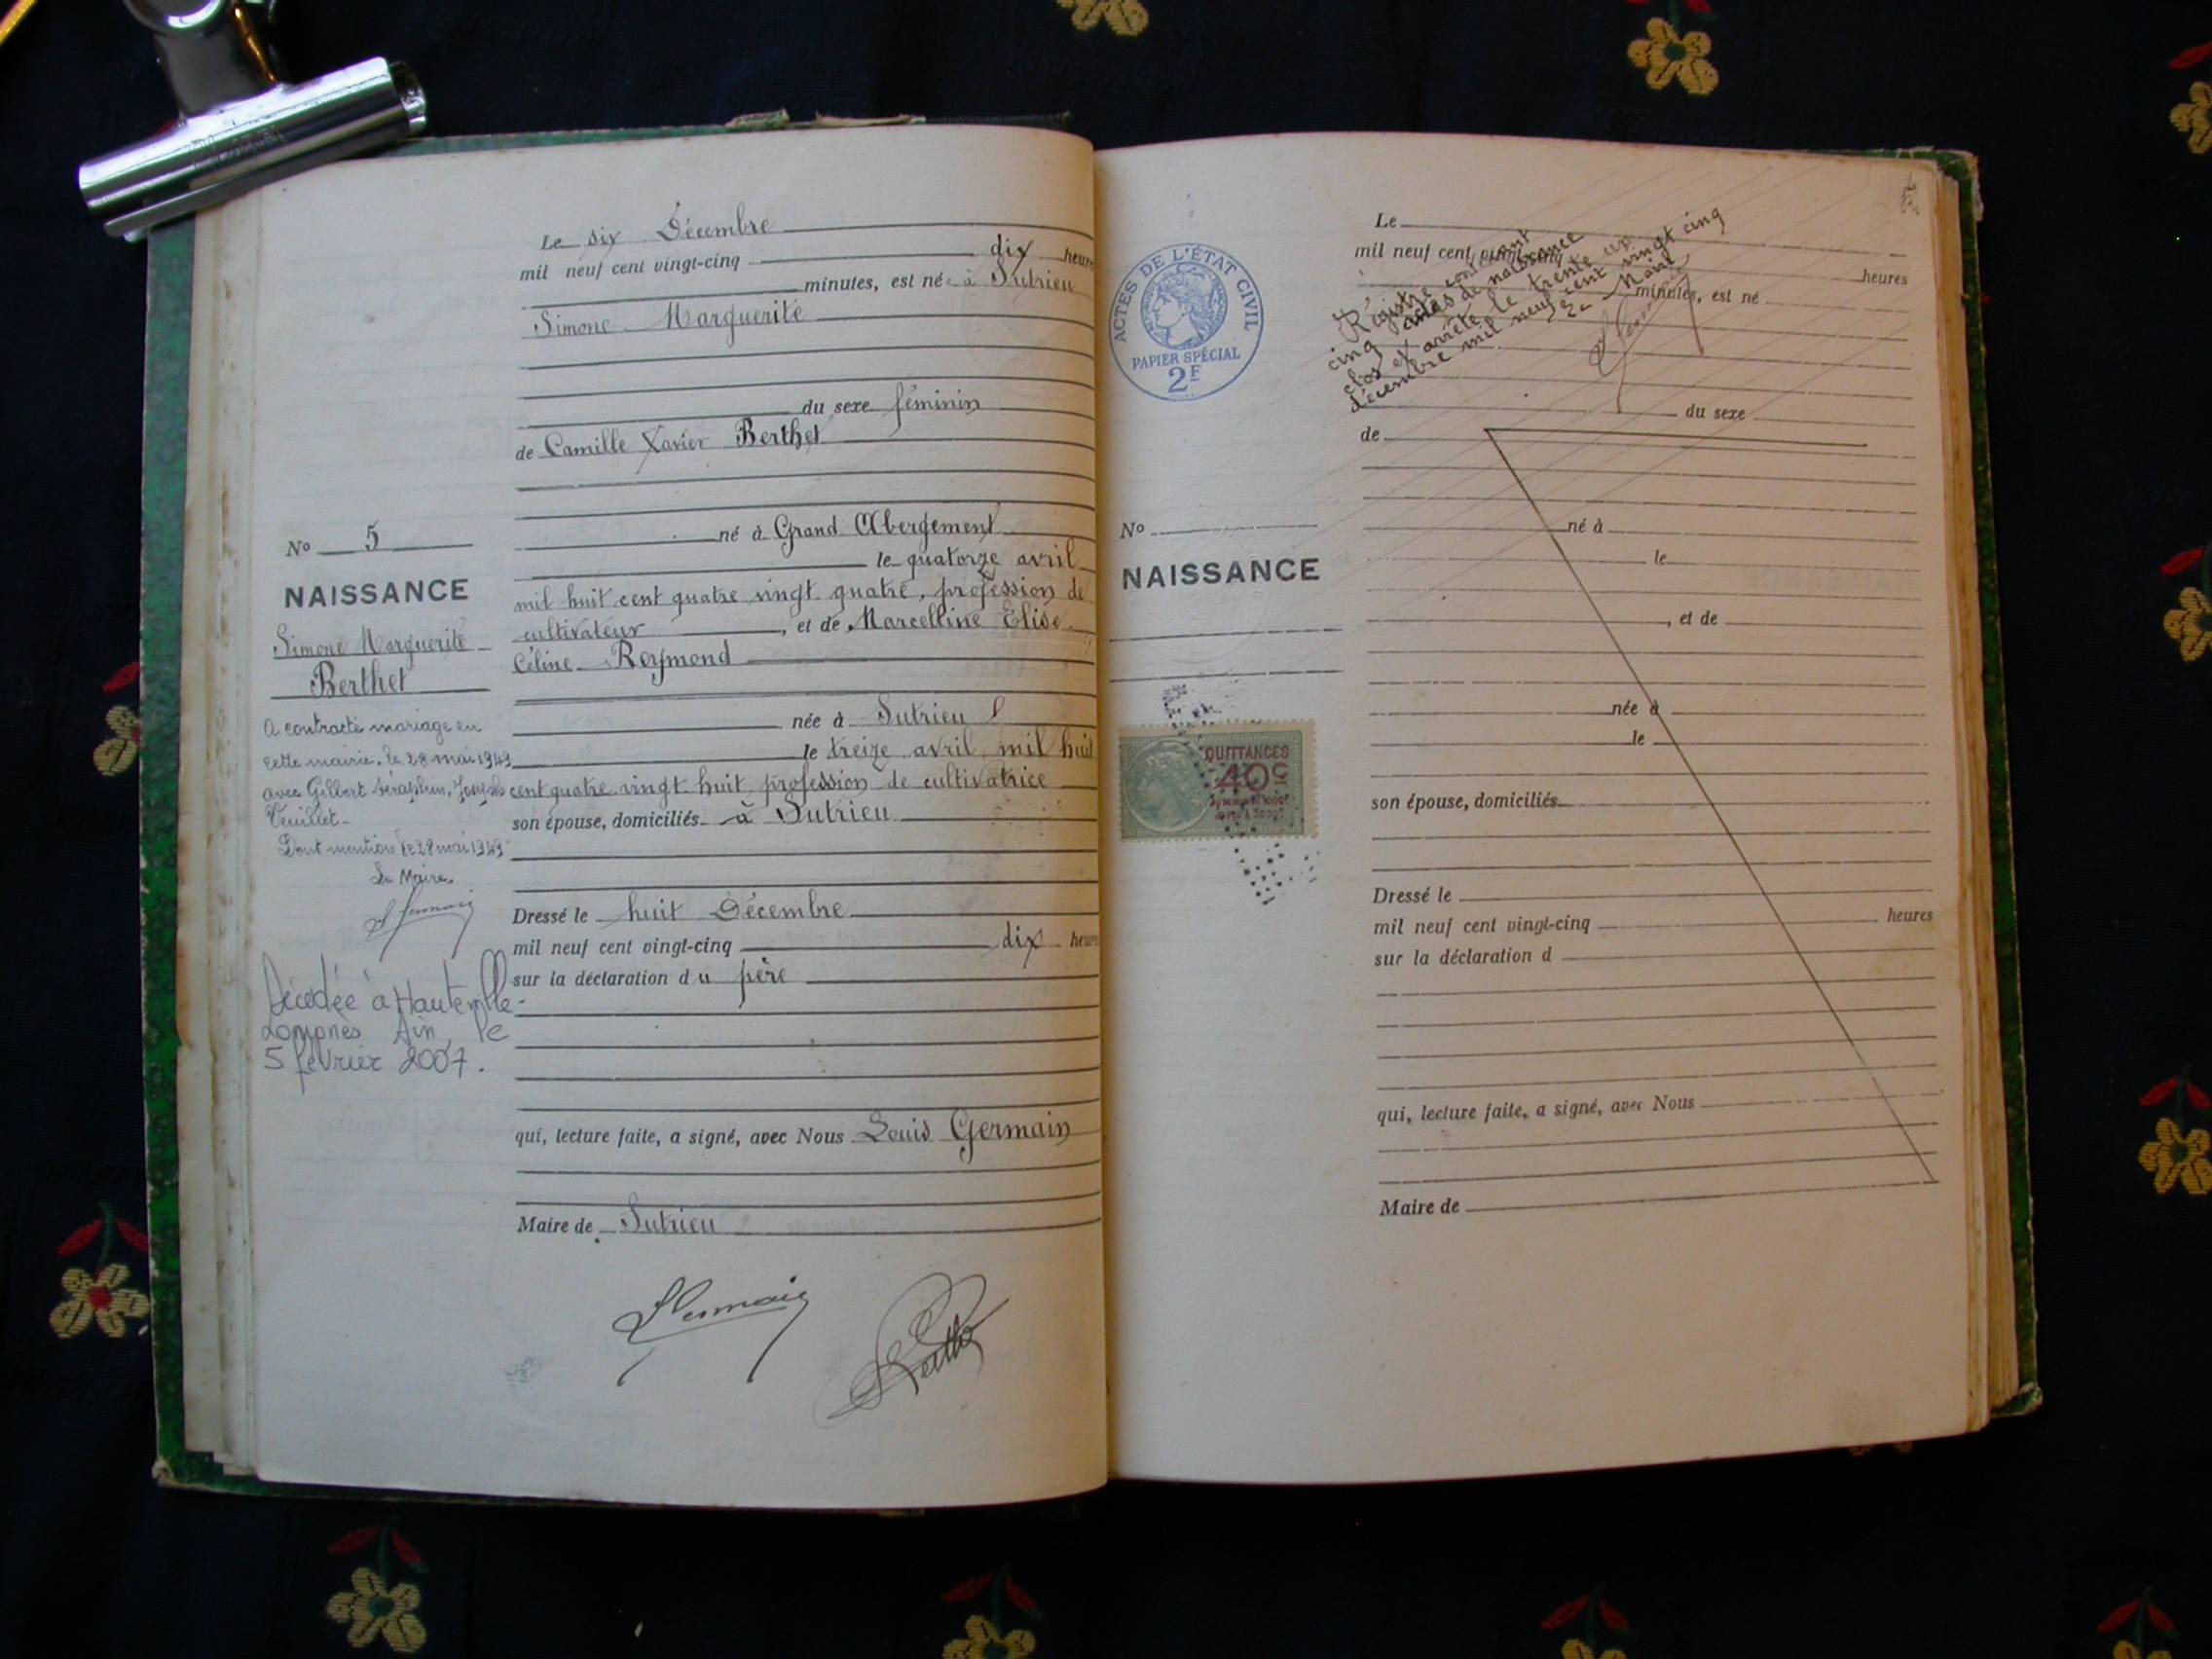 Le six Décembre
mil neuf cent vingt-cinq dix heures
minutes, est née à Sutrieu
Simone Marguerite
du sexe féminin
de Camille Xavier Berthet
né à Grand Abergement
le quatorze avril
mil huit cent quatre vingt quatre, profession de
cultivateur, et de Marcelline Elise
Céline Reymond
née à Sutrieu
le treize avril mil huit
cent quatre vingt huit, profession de cultivatrice
son épouse, domiciliés à Sutrieu
Dressé le huit Décembre
mil neuf cent vingt-cinq dix heures
sur la déclaration du père
qui, lecture faite, a signé, avec Nous Louis Germain
Maire de Sutrieu
LGermain
Berthet
No 5
NAISSANCE
Simone Marguerite
Berthet
A contracté mariage en
cette mairie, le 28 mai 1949
avec Gilbert Séraphin, Joseph
Veuillet
Dont mention le 28 mai 1949
Le Maire
LGermain
Décédée à Hauteville-
Lompnes Ain, le
5 février 2007.
ACTES DE L'ÉTAT CIVIL
PAPIER SPÉCIAL
2F
No
NAISSANCE
QUITTANCES
40c
Le
mil neuf cent vingt-cinq
heures
minutes, est né
Régistre contenant
cinq actes de naissance
clos et arrêté le trente un
décembre mil neuf cent vingt cinq
Le Maire
LGermain
du sexe
de
né à
le
, et de
née à
le
son épouse, domiciliés
Dressé le
mil neuf cent vingt-cinq heures
sur la déclaration d
qui, lecture faite, a signé, avec Nous
Maire de